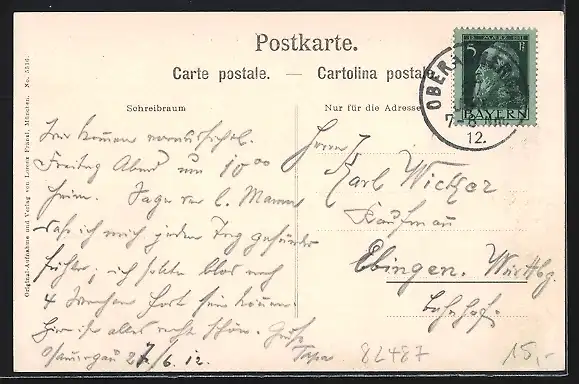 Postkarte.
Carte postale. — Cartolina postale
Schreibraum
Nur für die Adresse
Original-Aufnahme und Verlag von Lorenz Fränzl, München. No. 5536.
15. MÄRZ 1911
5 Pf
BAYERN
OBERA
12.
Freitag Abend um 10 00
heim. Sage der l. Mama
daß ich mich jeden Tag gesünder
fühle, ich sollte blos noch
4 Wochen dort sein können.
Hier ist alles recht schön. Gruß
O'ammergau 27/6.12. Papa
Herrn
Karl Wicker
Kaufmann
Ebingen. Württbg.
Bahnhofs
82487
15,-